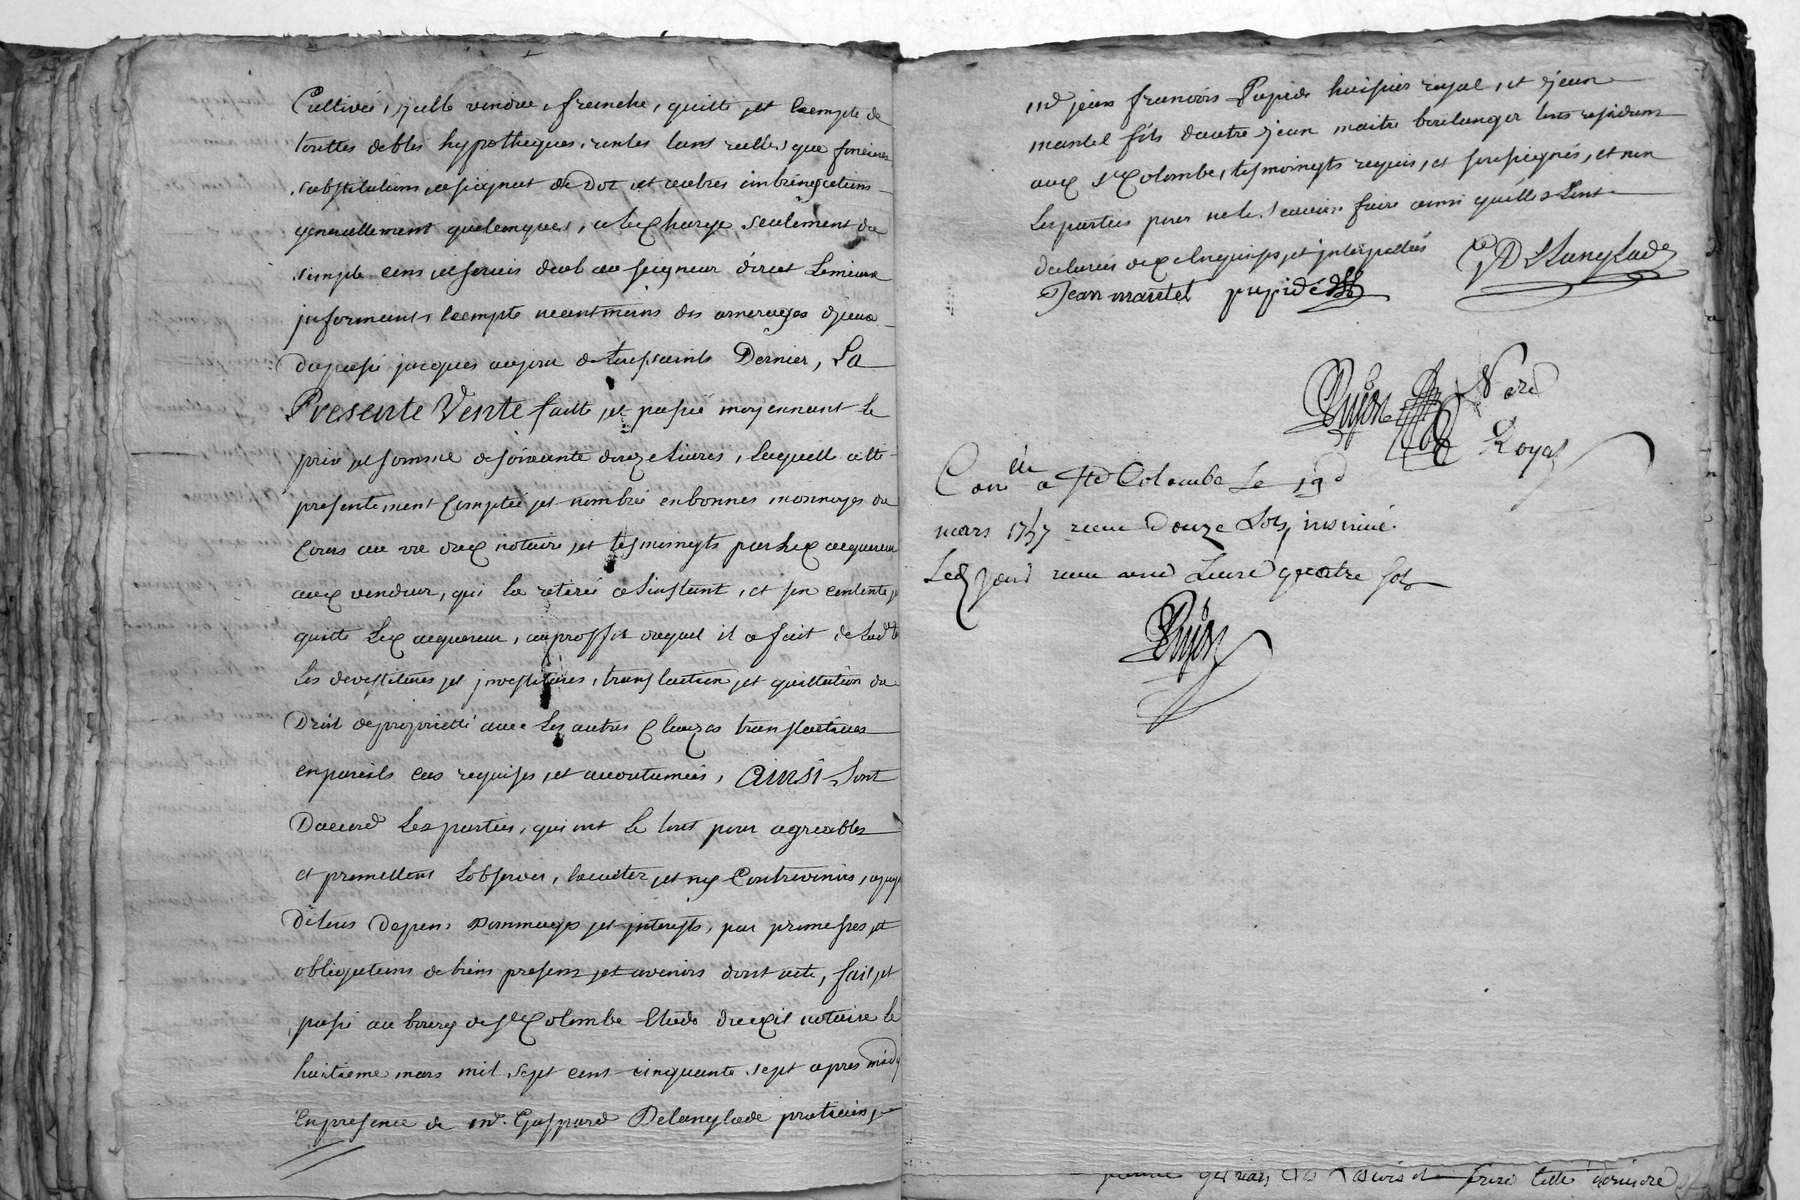 Cultivée, icelle vendue, franche, quitte et exempte de
touttes debtes hypotheques, rentes tant reelles que foncieres
substitutions assignat de Dot et autres
generallement quelconques, a la charge seulement du
simple cens et servis deub au seigneur direct
exempte neantmoins des arrerages
du passé jusques au jour de toussaints Dernier, La
Presente Vente faitte et passée moyennant le
prix et somme de soixante douze Livres, laquelle a été
presentement comptée et nombrée en bonnes monnoyes du
cours au vu dud notaire et tesmoingts par led acquereur
aud vendeur, qui la retirée a linstant, et sen contente
quitte led acquereur, au proffit duquel il a fait de lad
les devestitures et investitures, translation et quittation du
Droit de proprietté avec les autres clauzes translatives
en pareils cas requises et accoutumées, ainsi sont
Daccord les parties, qui ont le tout pour agreables
et promettent lobserver, executer et ny contrevenir, a paye
de tous depens Dommages et interests, par promesses et
obligations de biens presens et avenirs dont acte, fait et
passé au bourg de Ste Colombe Etude dud notaire le
huitieme mars mil sept cent cinquante sept apres midy
En presence de mr. Gaspard Delanglade praticien
md jean francois Pupidé huissier royal, et jean
martel fils dautre jean maitre boulanger tous residens
aud Ste Colombe, tesmoingts requis, et soussignés, et non
les parties pour ne le scavoir faire ainsi quelles lont
declarées de ce enquises et interpellées DeLanglade
Jean martel pupidé
Dujon Nore
Royal
Conllé a Ste Colombe Le 19e
mars 1757 receu Douze Sols, insinué
Led jour receu une Livre quatre sols
Dujon